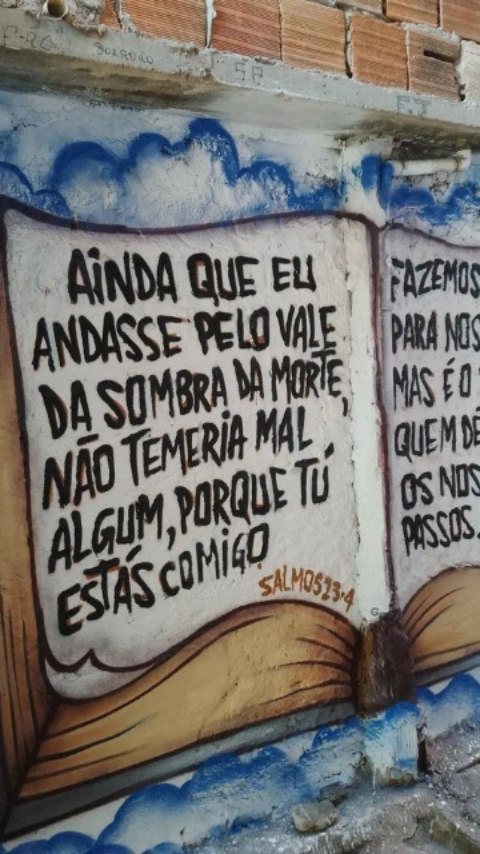 AINDA QUE EU
ANDASSE PELO VALE
DA SOMBRA DA MORTE,
NÃO TEMERIA MAL
ALGUM, PORQUE TÚ
ESTÁS COMIGO
SALMOS 23:4
FAZEMOS
PARA NOS
MAS É O
QUEM DÊ
OS NOS
PASSOS.